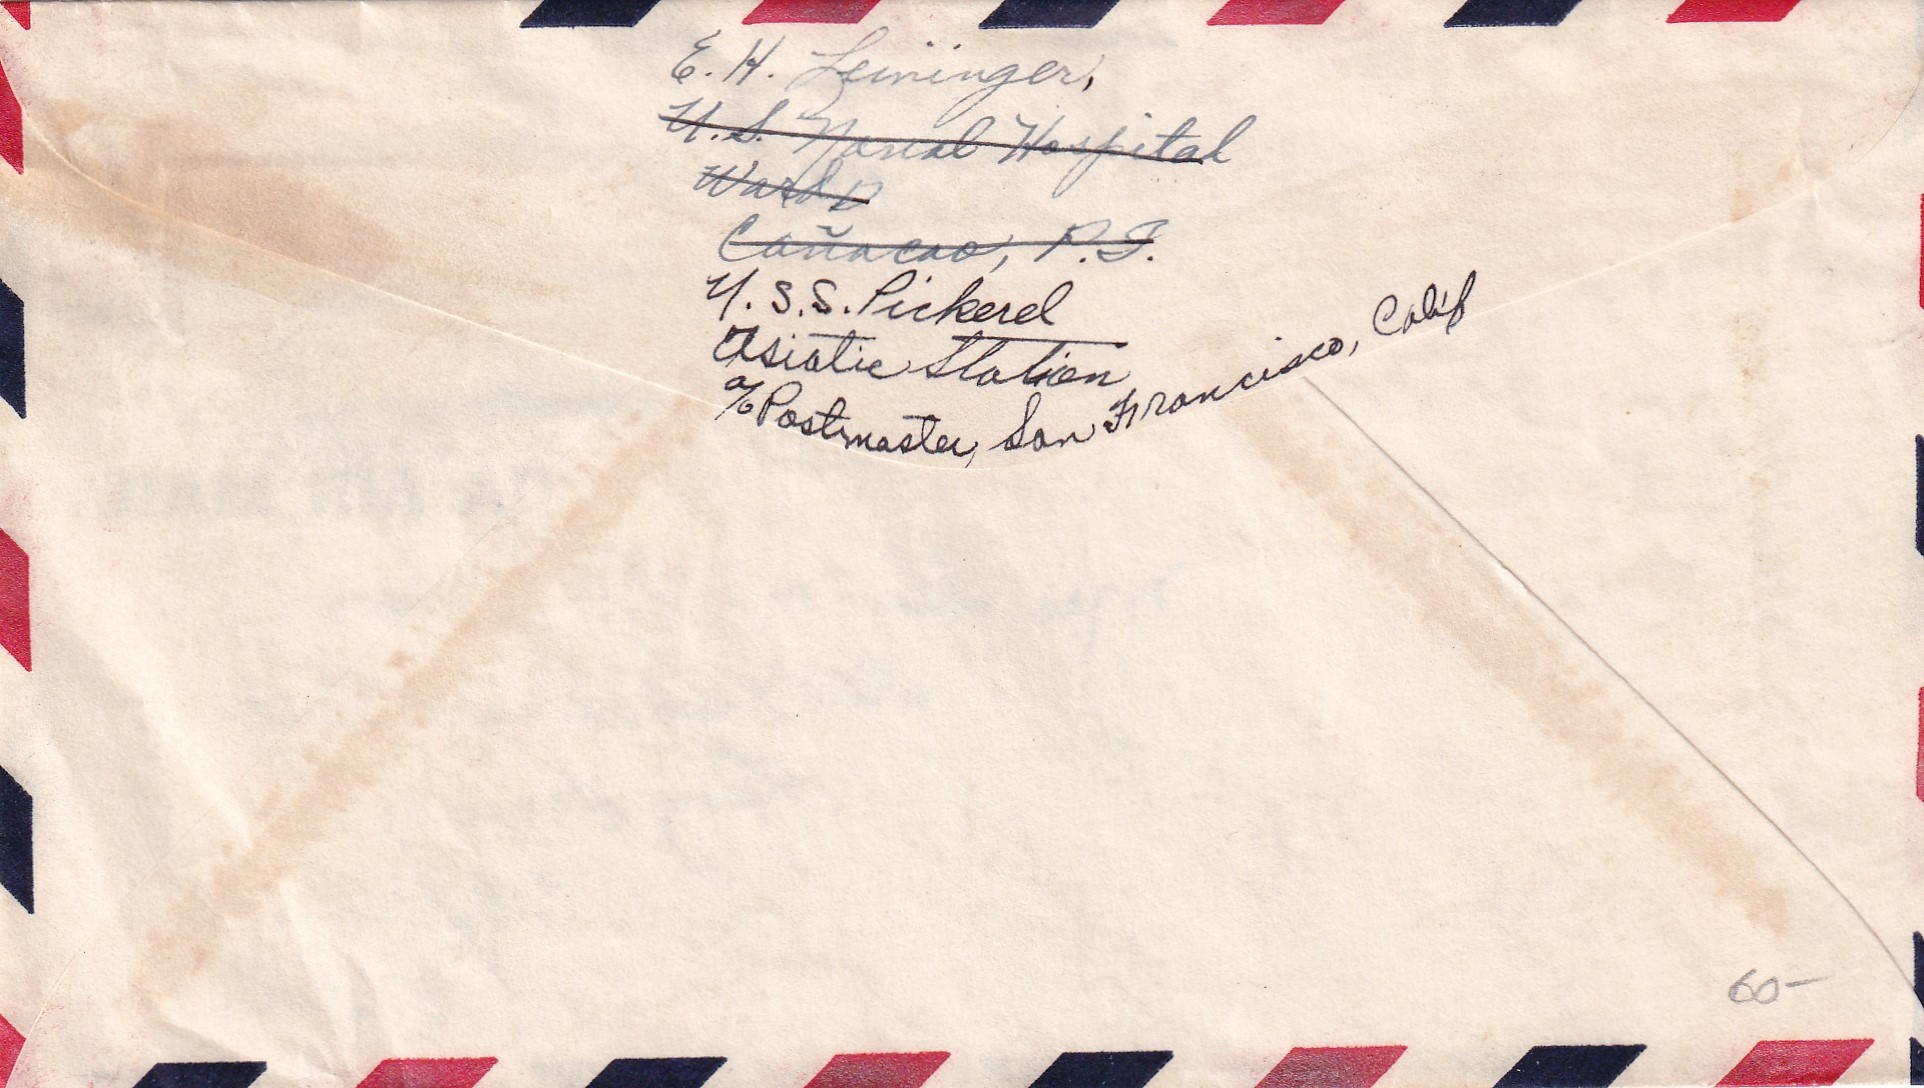 E. H. Leininger,
U.S. Naval Hospital
Ward D
Cañacao, P.I.
U.S.S. Pickerel
Asiatic Station
c/o Postmaster, San Francisco, Calif
VIA AIR MAIL
60-